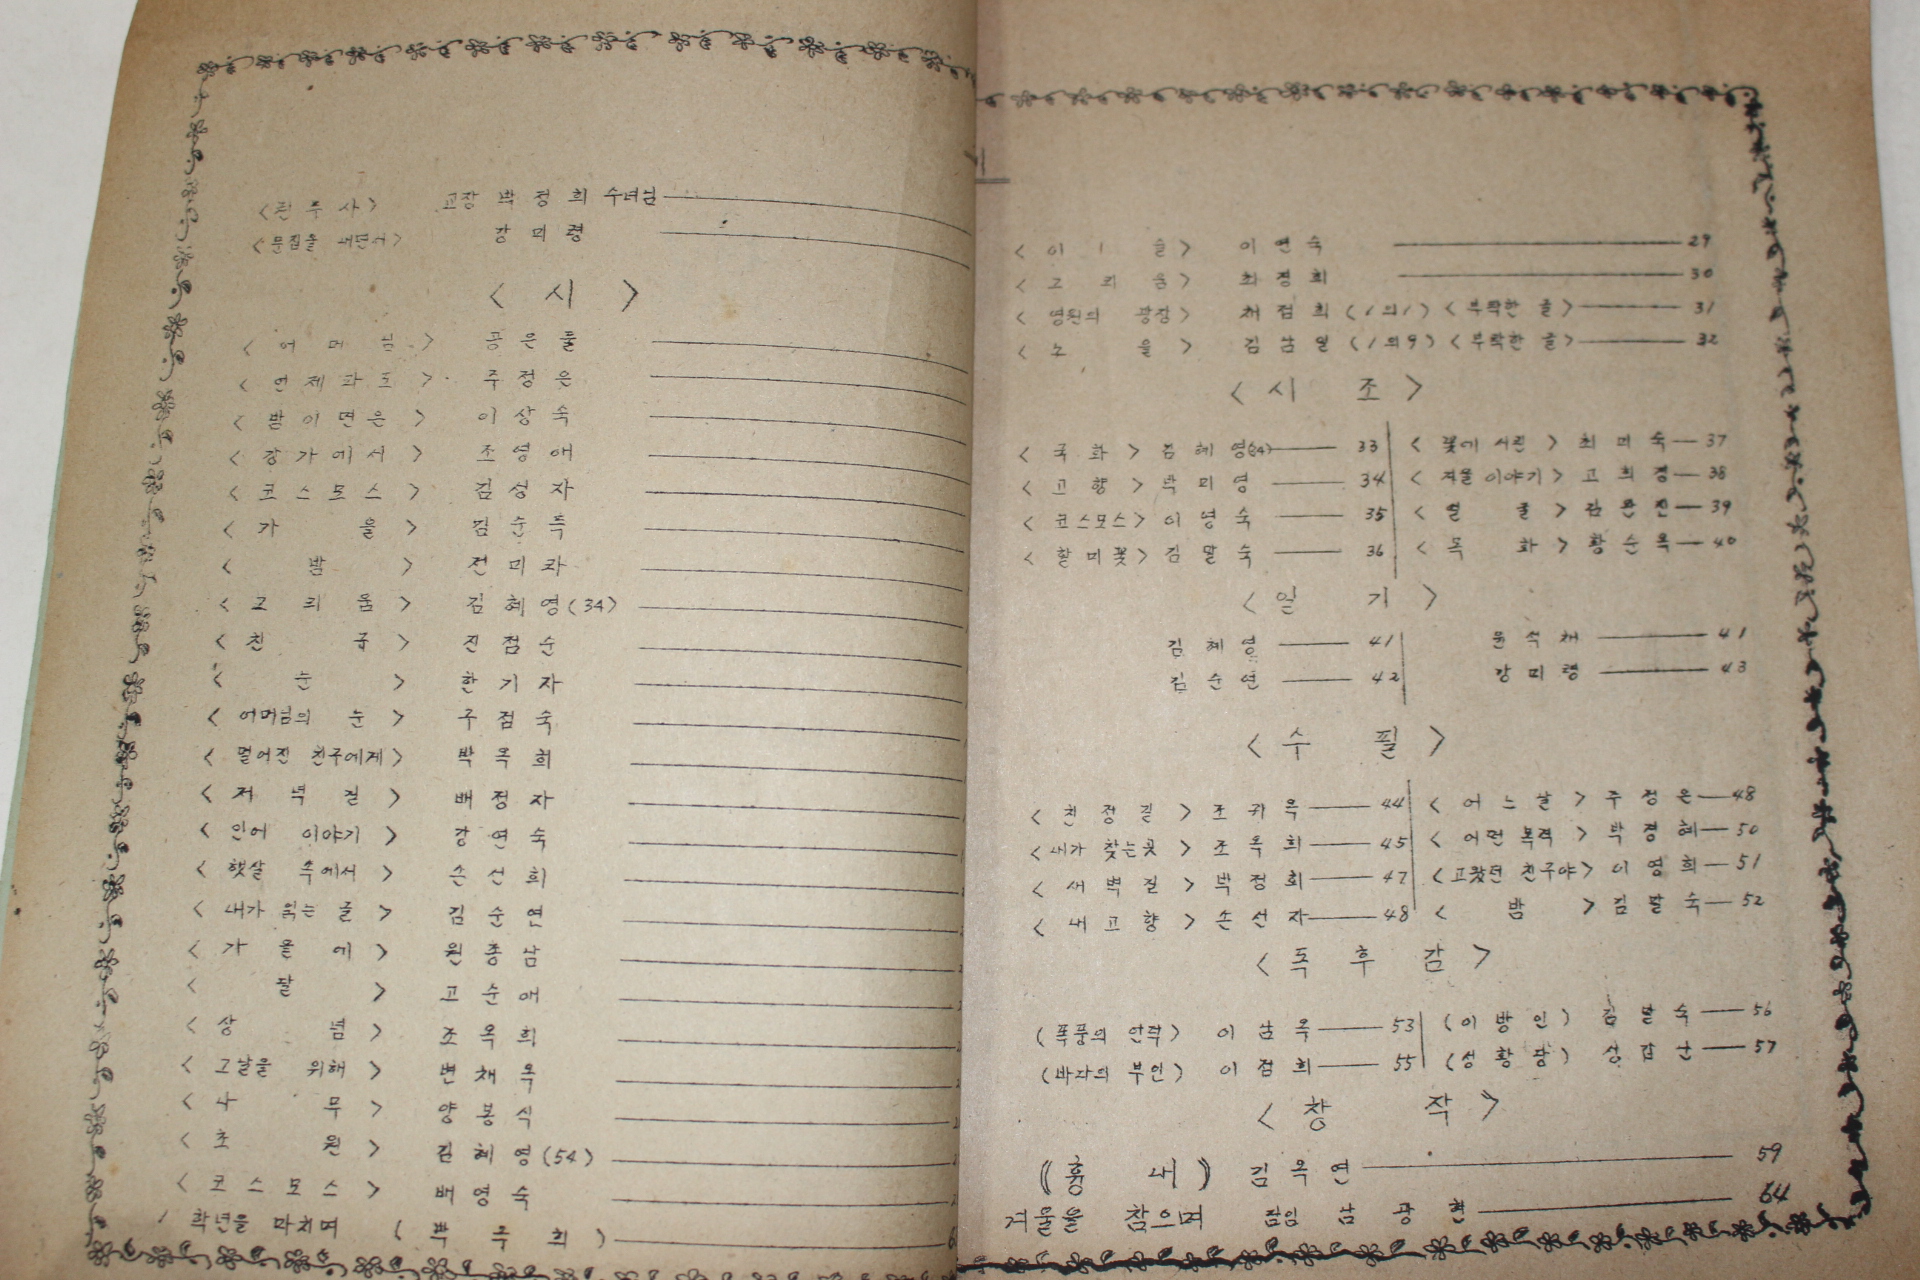 교장 박 정 희 수녀님
<문집을 내면서> 강 미 령
< 시 >
< 어 머 님 > 공 은 률
< 언 제 라 도 > 주 정 은
< 밤 이 면 은 > 이 상 숙
< 강 가 에 서 > 조 영 애
< 코 스 모 스 > 김 성 자
< 가 을 > 김 순 득
< 밤 > 전 미 라
< 그 리 움 > 김 혜 영 (34)
< 친 구 > 진 점 순
< 눈 > 한 기 자
< 어머님의 눈 > 구 점 숙
< 멀어진 친구에게 > 박 옥 희
< 저 녁 길 > 배 정 자
< 인어 이야기 > 강 연 숙
< 햇살 속에서 > 손 선 희
< 내가 읽는 글 > 김 순 연
< 가 을 에 > 원 종 남
< 달 > 고 순 애
< 상 념 > 조 옥 희
< 그날을 위해 > 변 채 옥
< 나 무 > 양 봉 식
< 초 원 > 김 혜 영 (54)
< 코 스 모 스 > 배 영 숙
학년을 마치며 ( 박 희 )
< 이 슬 > 이 연 숙 29
< 그 리 움 > 최 정 희 30
< 영원의 광장 > 채 점 희 (1의1) <부락한 글> 31
< 노 을 > 김 남 일 (1의9) <부락한 글> 32
< 시 조 >
< 국 화 > 김 혜 영(34) 33 < 꽃에 서린 > 최 미 숙 37
< 고 향 > 박 미 영 34 < 겨울 이야기 > 고 희 경 38
< 코스모스 > 이 영 숙 35 < 얼 굴 > 39
< 할 미 꽃 > 김 말 숙 36 < 목 화 > 황 순 옥 40
< 일 기 >
김 혜 영 41 윤 석 채 41
김 순 연 42 강 미 령 43
< 수 필 >
< 친 정 길 > 조 귀 옥 44 < 어 느 날 > 주 정 은 48
< 내가 찾는 꽃 > 조 옥 희 45 < 어떤 목격 > 박 경 혜 50
< 새 벽 길 > 박 정 희 47 < 고왔던 친구야 > 이 영 희 51
< 내 고 향 > 손 선 자 48 < 밤 > 김 말 숙 52
< 독 후 감 >
(폭풍의 언덕) 이 남 옥 53 (이 방 인) 김 말 숙 56
(바다의 부인) 이 점 희 55 (성 황 당) 성 갑 난 57
< 창 작 >
(흉 내) 김 옥 연 59
겨울을 참으며 담임 남 광 현 64